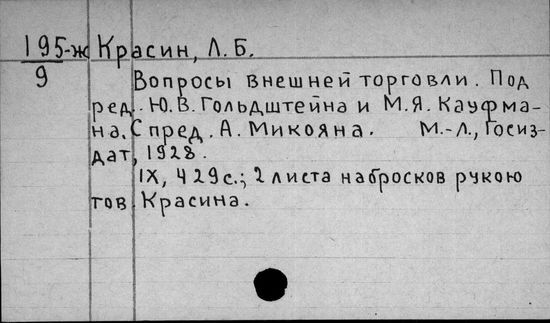 195-ж Красин, Л. Б.
9
Вопросы внешней торговли. Под
ред. Ю.В. Гольдштейна и М.Я. Кауфма-
на. С пред. А. Микояна. М.-Л., Госиз-
дат, 1928.
IX, 429с.; 2 листа набросков рукою
тов. Красина.